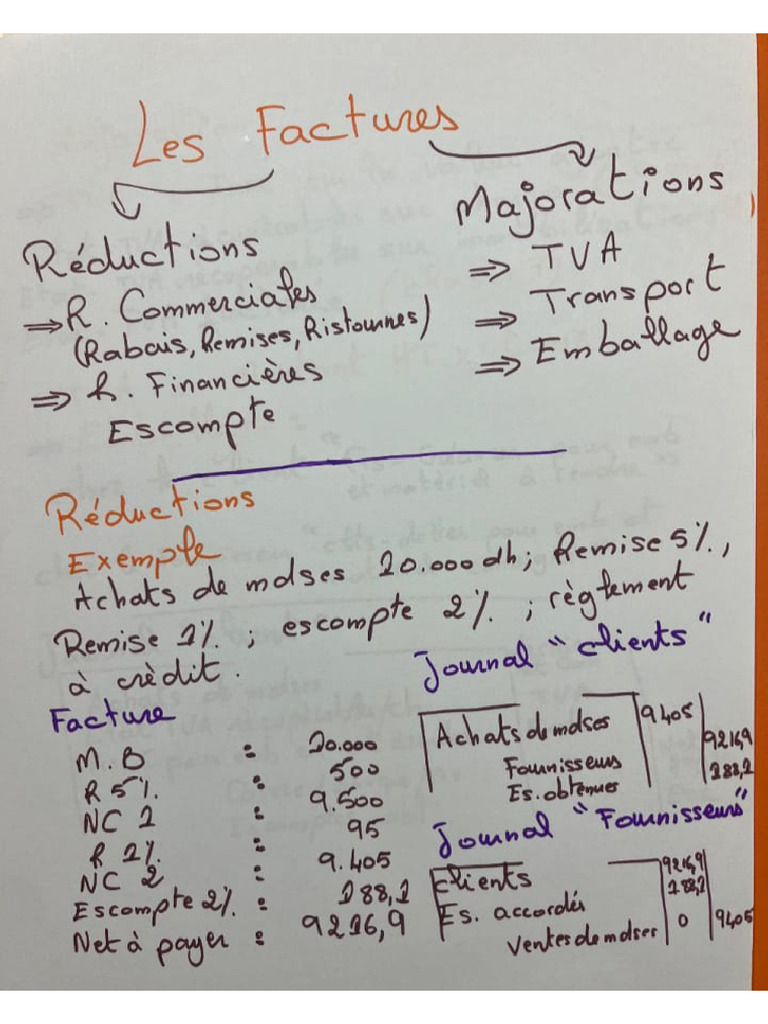 Les Factures
Réductions
⇒ R. Commerciales
(Rabais, Remises, Ristournes)
⇒ R. Financières
Escompte
Majorations
⇒ TVA
⇒ Transport
⇒ Emballage
Réductions
Exemple
Achats de mdses 10.000 dh; Remise 5%,
Remise 1%; escompte 2%; règlement
à crèdit.
Facture
M.B : 10.000
R 5% : 500
NC 1 : 9.500
R 1% : 95
NC 2 : 9.405
Escompte 2% : 188,1
Net à payer : 9216,9
Journal "clients"
Achats de mdses 9405
Fournisseurs 9216,9
Es. obtenues 188,1
Journal "Fournisseurs"
Clients 9216,9
Es. accordés 188,2
Ventes de mdses 0 9405